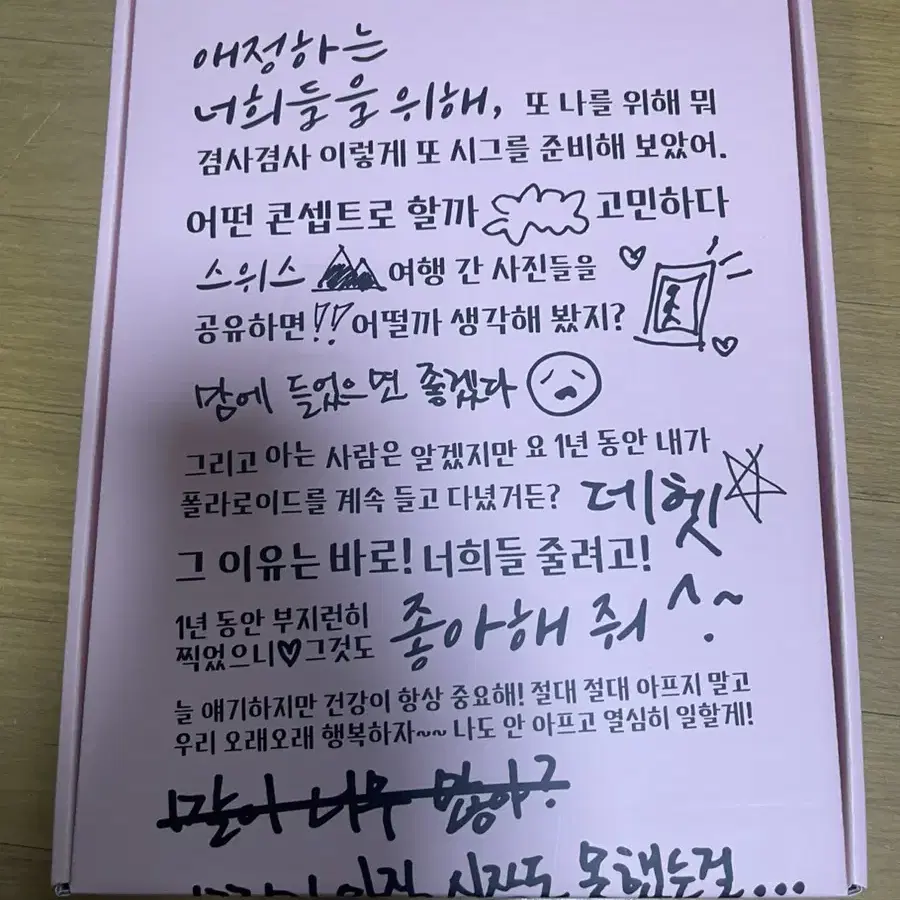 애정하는
너희들을 위해, 또 나를 위해 뭐
겸사겸사 이렇게 또 시그를 준비해 보았어.
어떤 콘셉트로 할까 고민하다
스위스 여행 간 사진들을
공유하면!! 어떨까 생각해 봤지?
맘에 들었으면 좋겠다
그리고 아는 사람은 알겠지만 요 1년 동안 내가
폴라로이드를 계속 들고 다녔거든? 데헷
그 이유는 바로! 너희들 줄려고!
1년 동안 부지런히
찍었으니♡그것도 좋아해 줘 ^.~
늘 얘기하지만 건강이 항상 중요해! 절대 절대 아프지 말고
우리 오래오래 행복하자~~ 나도 안 아프고 열심히 일할게!
말이 너무 많아?
아직 시작도 못했는걸...